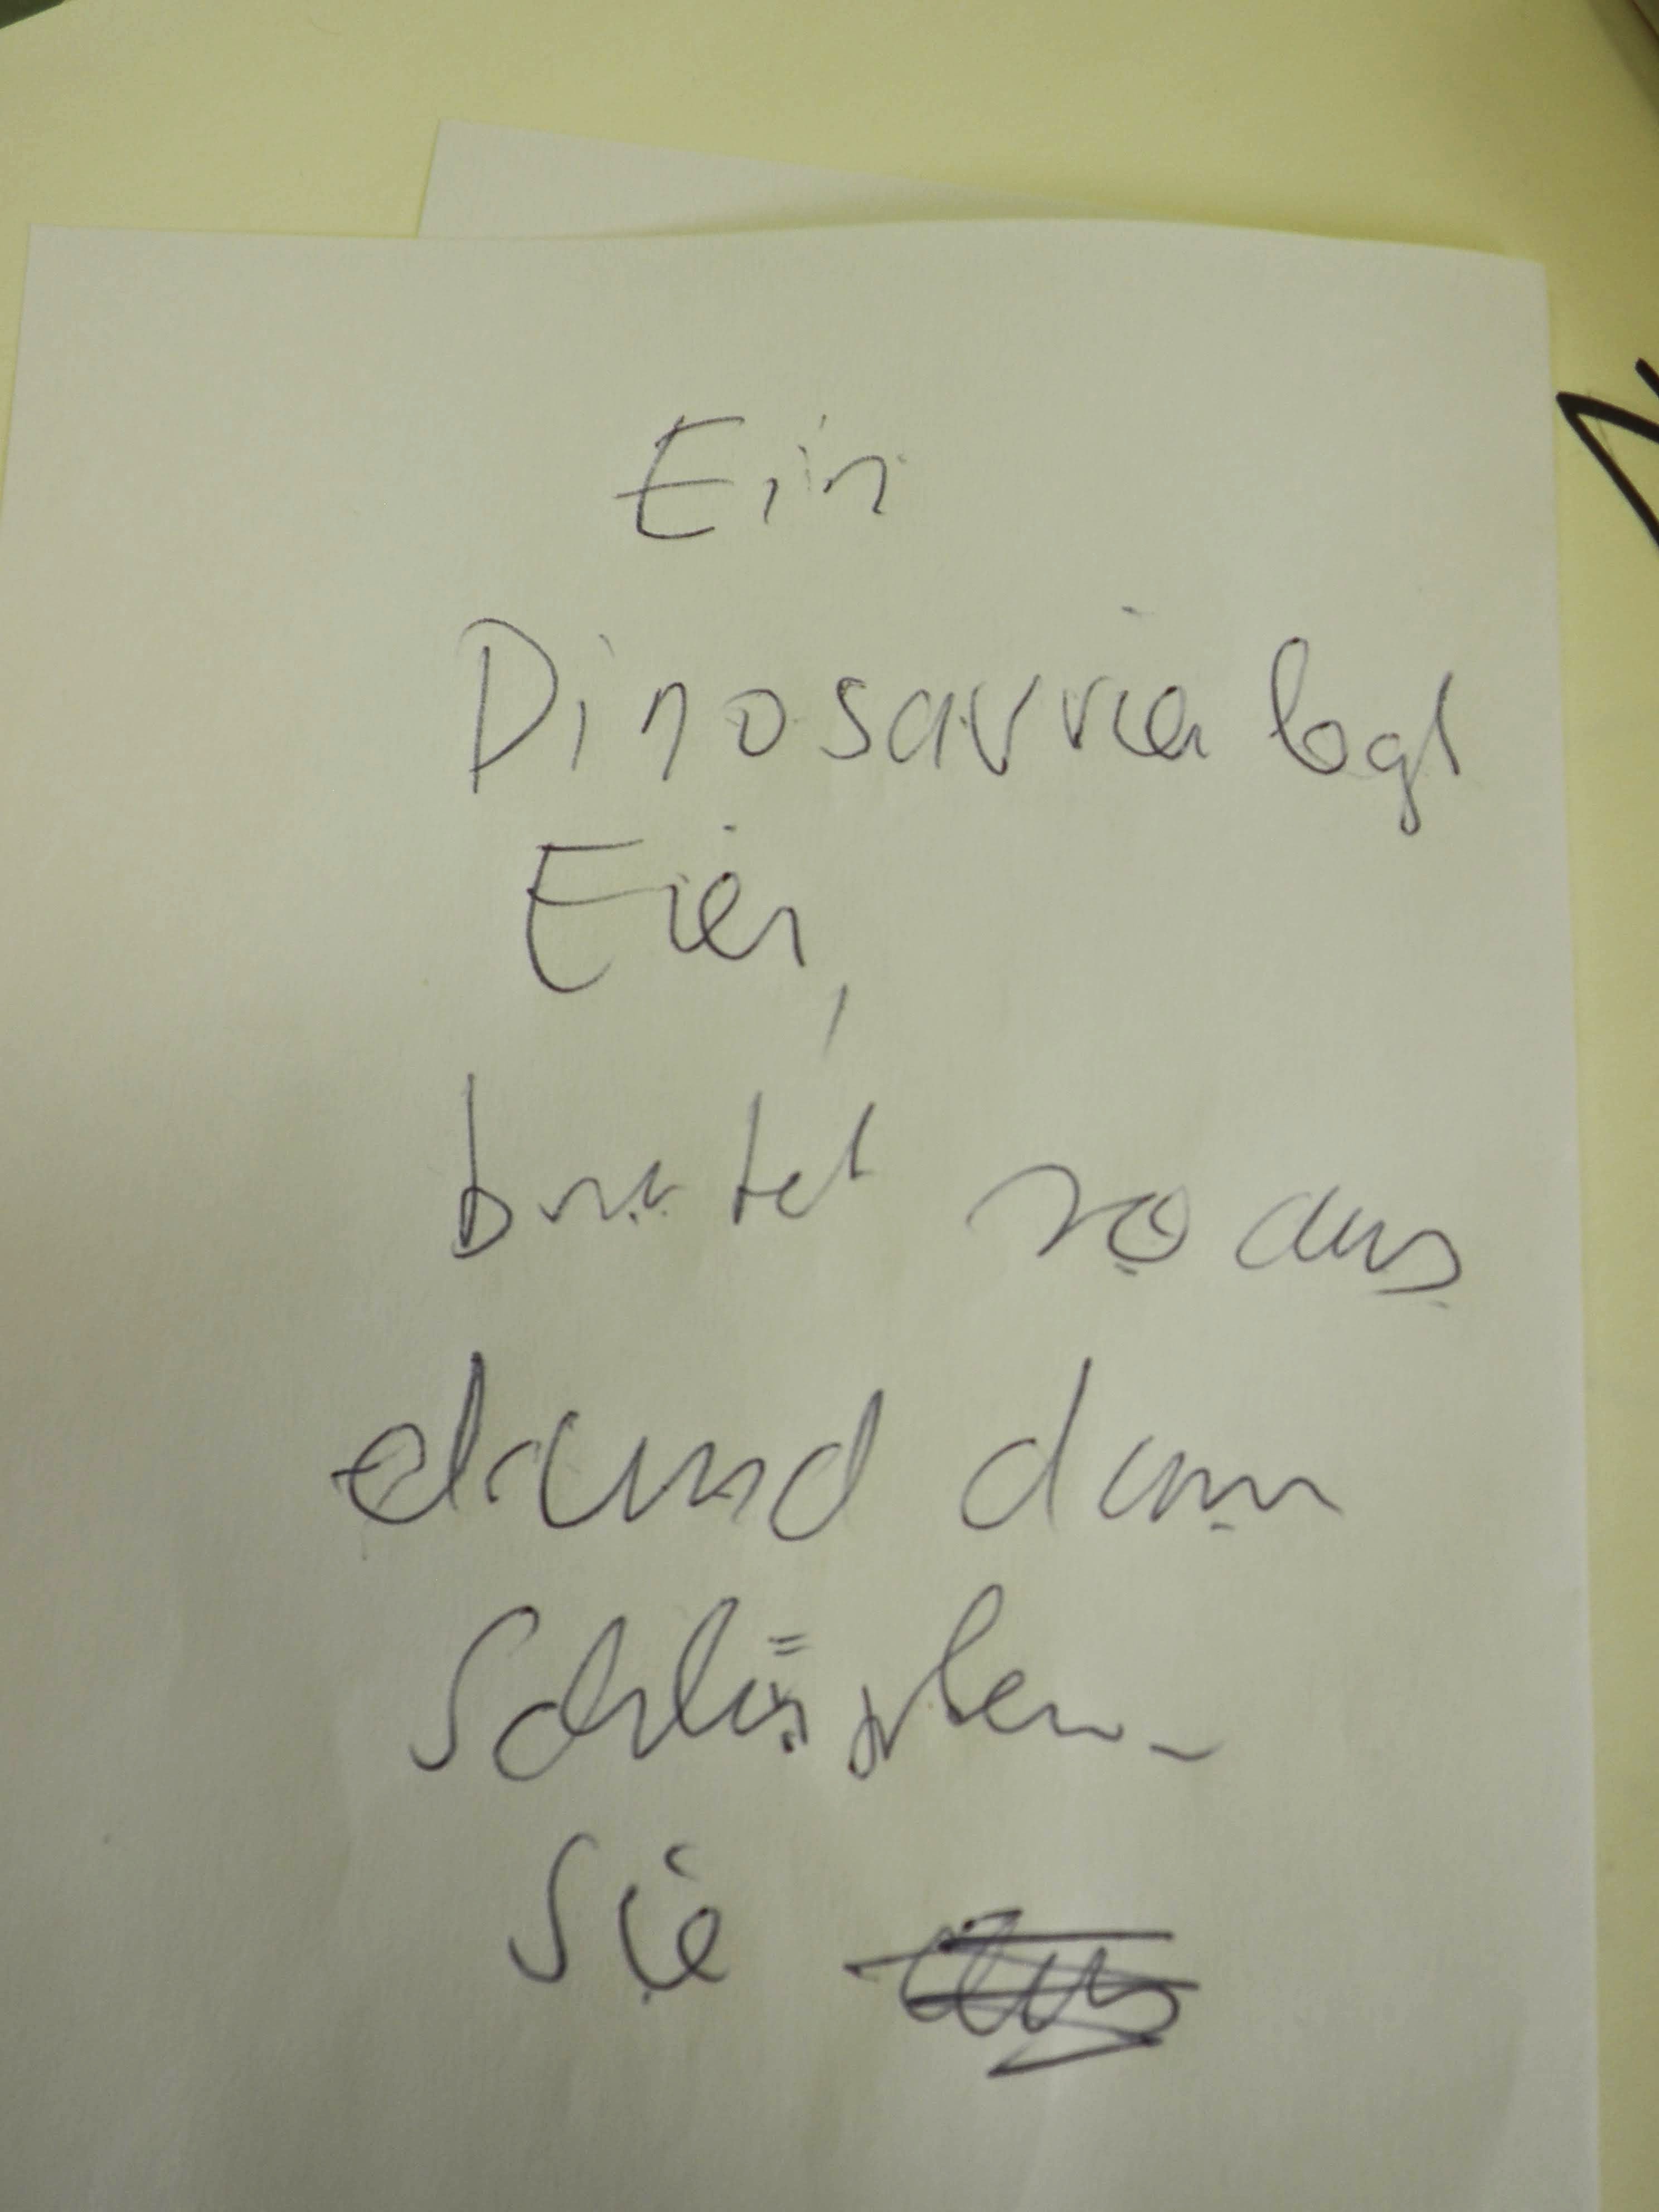 Ein
Dinosaurier legt
Eier,
brütet so aus
und dann
Schlüpfen
Sie